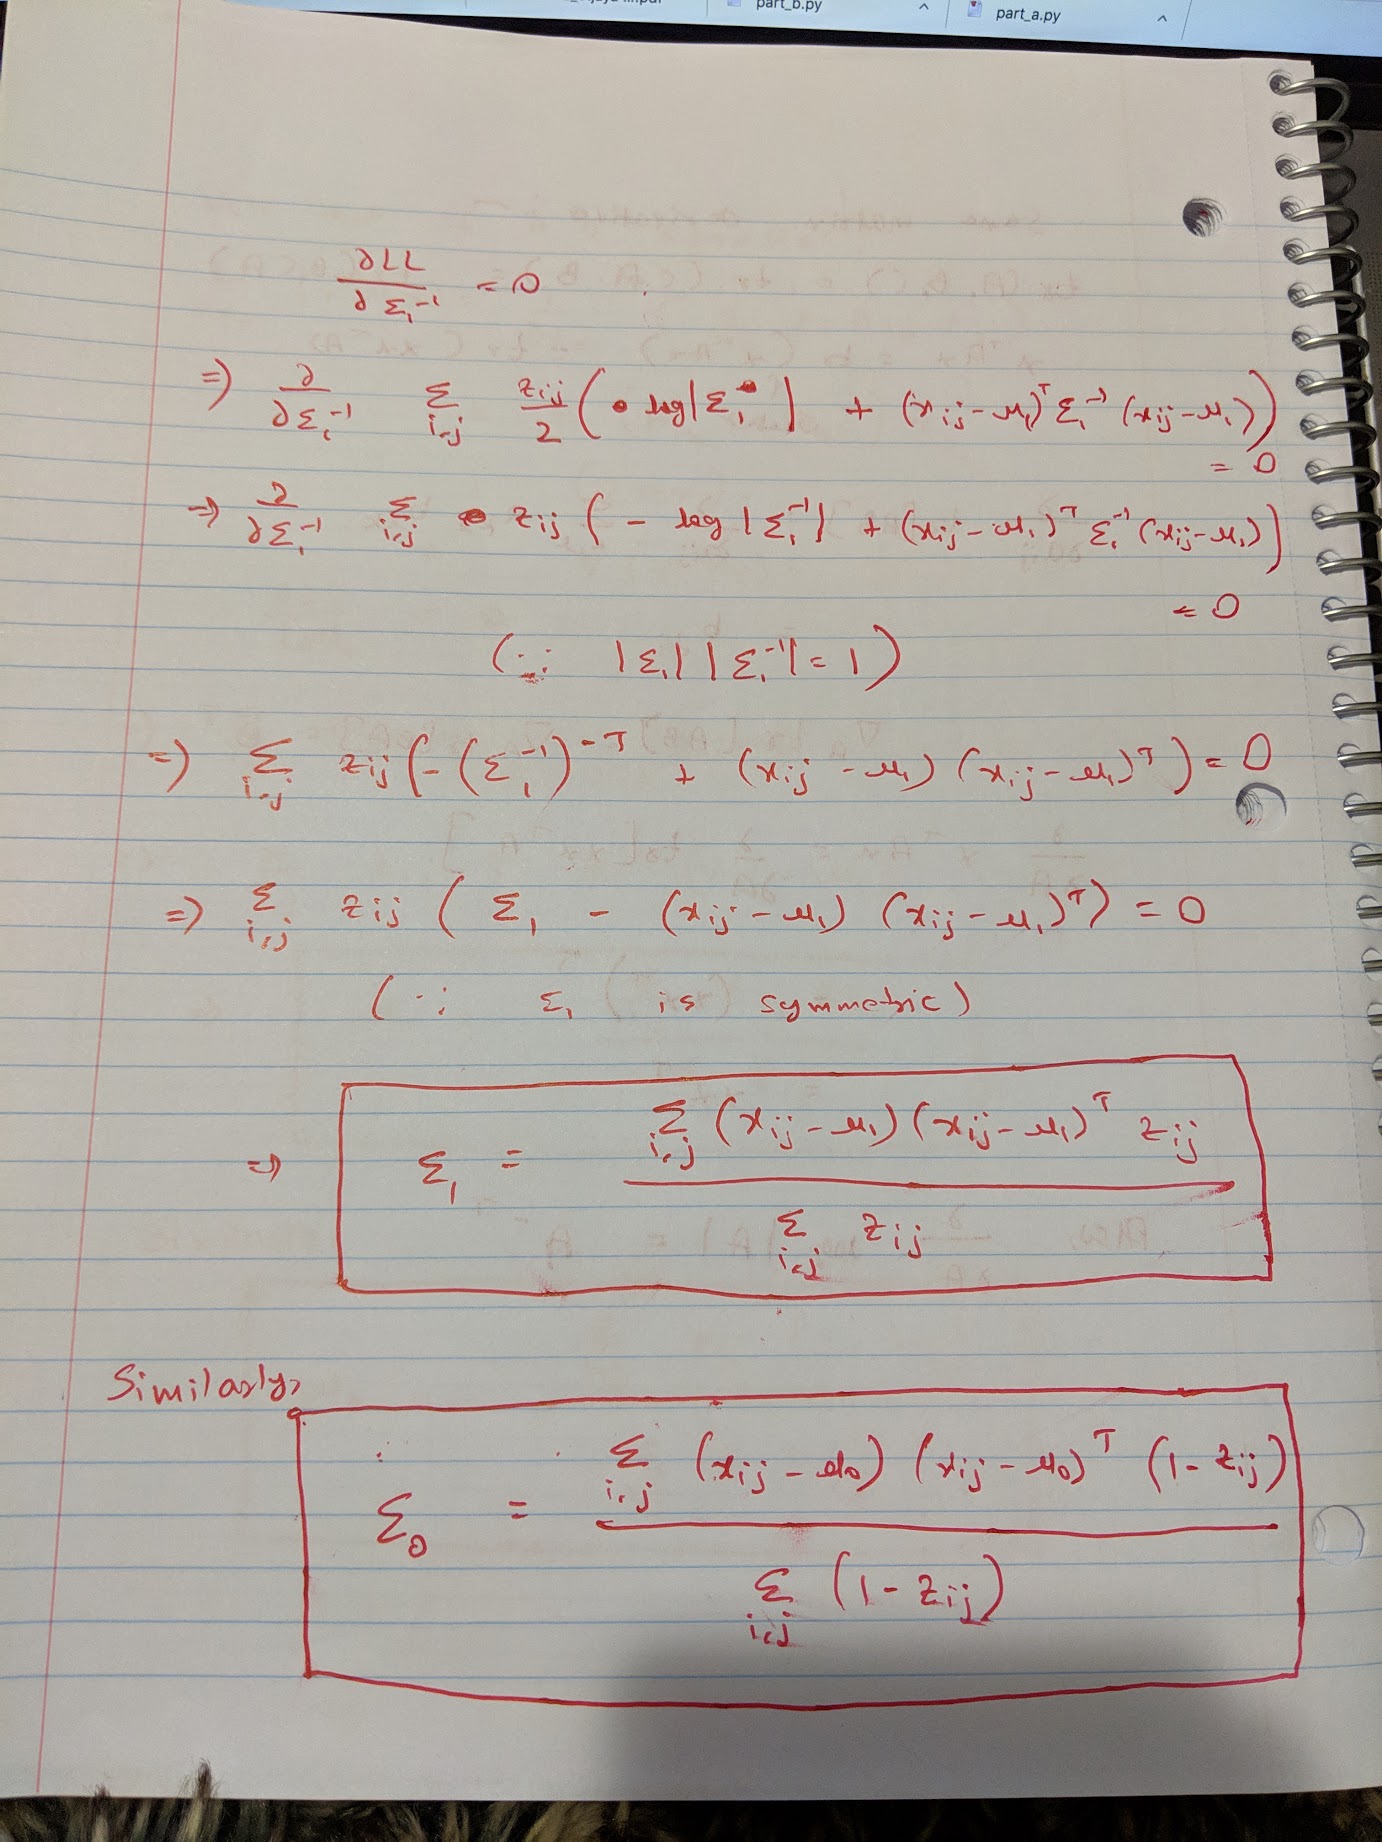 part_b.py
part_a.py
∂LL / ∂Σ₁⁻¹ = 0
⇒ ∂/∂Σ₁⁻¹ Σ_{i,j} z_ij/2 ( log|Σ₁| + (x_ij - μ₁)ᵀ Σ₁⁻¹ (x_ij - μ₁) )
= 0
⇒ ∂/∂Σ₁⁻¹ Σ_{i,j} z_ij ( - log |Σ₁⁻¹| + (x_ij - μ₁)ᵀ Σ₁⁻¹ (x_ij - μ₁) )
= 0
(∵ |Σ₁| |Σ₁⁻¹| = 1)
⇒ Σ_{i,j} z_ij ( - (Σ₁⁻¹)^{-T} + (x_ij - μ₁) (x_ij - μ₁)ᵀ ) = 0
⇒ Σ_{i,j} z_ij ( Σ₁ - (x_ij - μ₁) (x_ij - μ₁)ᵀ ) = 0
(∵ Σ₁ is symmetric)
⇒ Σ₁ = Σ_{i,j} (x_ij - μ₁) (x_ij - μ₁)ᵀ z_ij / Σ_{i,j} z_ij
Similarly,
Σ₀ = Σ_{i,j} (x_ij - μ₀) (x_ij - μ₀)ᵀ (1 - z_ij) / Σ_{i,j} (1 - z_ij)